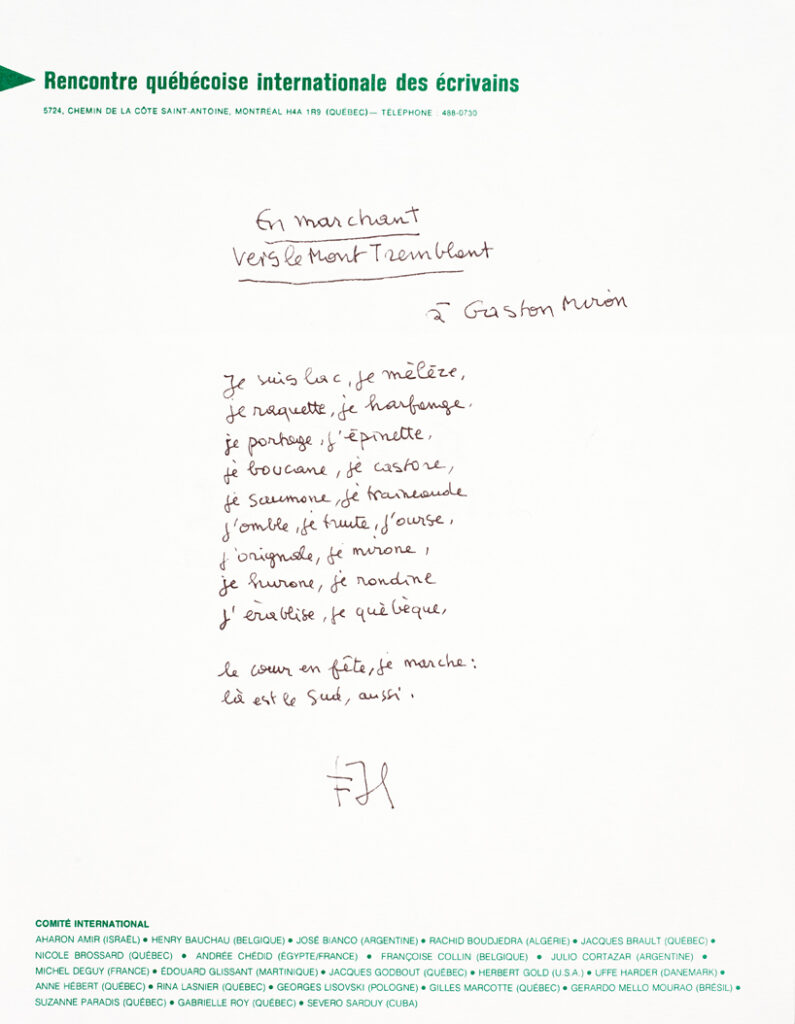 Rencontre québécoise internationale des écrivains
5724, CHEMIN DE LA CÔTE SAINT-ANTOINE, MONTRÉAL H4A 1R9 (QUÉBEC) — TÉLÉPHONE : 488-0730
En marchant
vers le Mont Tremblant
à Gaston Miron
Je suis lac, je mélèze,
je raquette, je harfange.
je portage, j'épinette,
je boucane, je castore,
je saumone, je traineaude
j'omble, je truite, j'ourse,
j'orignale, je mirone,
je hurone, je rondine
j'érablise, je québèque,
le cœur en fête, je marche :
là est le Sud, aussi.
FJH
COMITÉ INTERNATIONAL
AHARON AMIR (ISRAËL) ● HENRY BAUCHAU (BELGIQUE) ● JOSÉ BIANCO (ARGENTINE) ● RACHID BOUDJEDRA (ALGÉRIE) ● JACQUES BRAULT (QUÉBEC) ●
NICOLE BROSSARD (QUÉBEC) ● ANDRÉE CHÉDID (ÉGYPTE/FRANCE) ● FRANÇOISE COLLIN (BELGIQUE) ● JULIO CORTAZAR (ARGENTINE) ●
MICHEL DEGUY (FRANCE) ● ÉDOUARD GLISSANT (MARTINIQUE) ● JACQUES GODBOUT (QUÉBEC) ● HERBERT GOLD (U.S.A.) ● UFFE HARDER (DANEMARK) ●
ANNE HÉBERT (QUÉBEC) ● RINA LASNIER (QUÉBEC) ● GEORGES LISOVSKI (POLOGNE) ● GILLES MARCOTTE (QUÉBEC) ● GERARDO MELLO MOURAO (BRÉSIL) ●
SUZANNE PARADIS (QUÉBEC) ● GABRIELLE ROY (QUÉBEC) ● SEVERO SARDUY (CUBA)